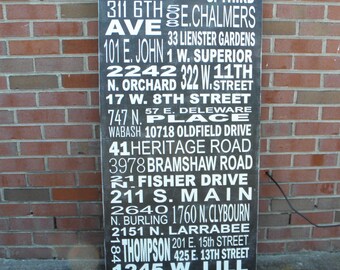 311 6TH
AVE
508 E.CHALMERS
33 LIENSTER GARDENS
101 E. JOHN
1 W. SUPERIOR
2242
N. ORCHARD
322 W. 11TH
STREET
17 W. 8TH STREET
747 N.
WABASH
57 E. DELEWARE
PLACE
10718 OLDFIELD DRIVE
41 HERITAGE ROAD
3978 BRAMSHAW ROAD
212 FISHER DRIVE
211 S. MAIN
2640
N. BURLING
1760 N. CLYBOURN
2151 N. LARRABEE
184 THOMPSON
201 E. 15th STREET
425 E. 13th STREET
1245 W. LILL